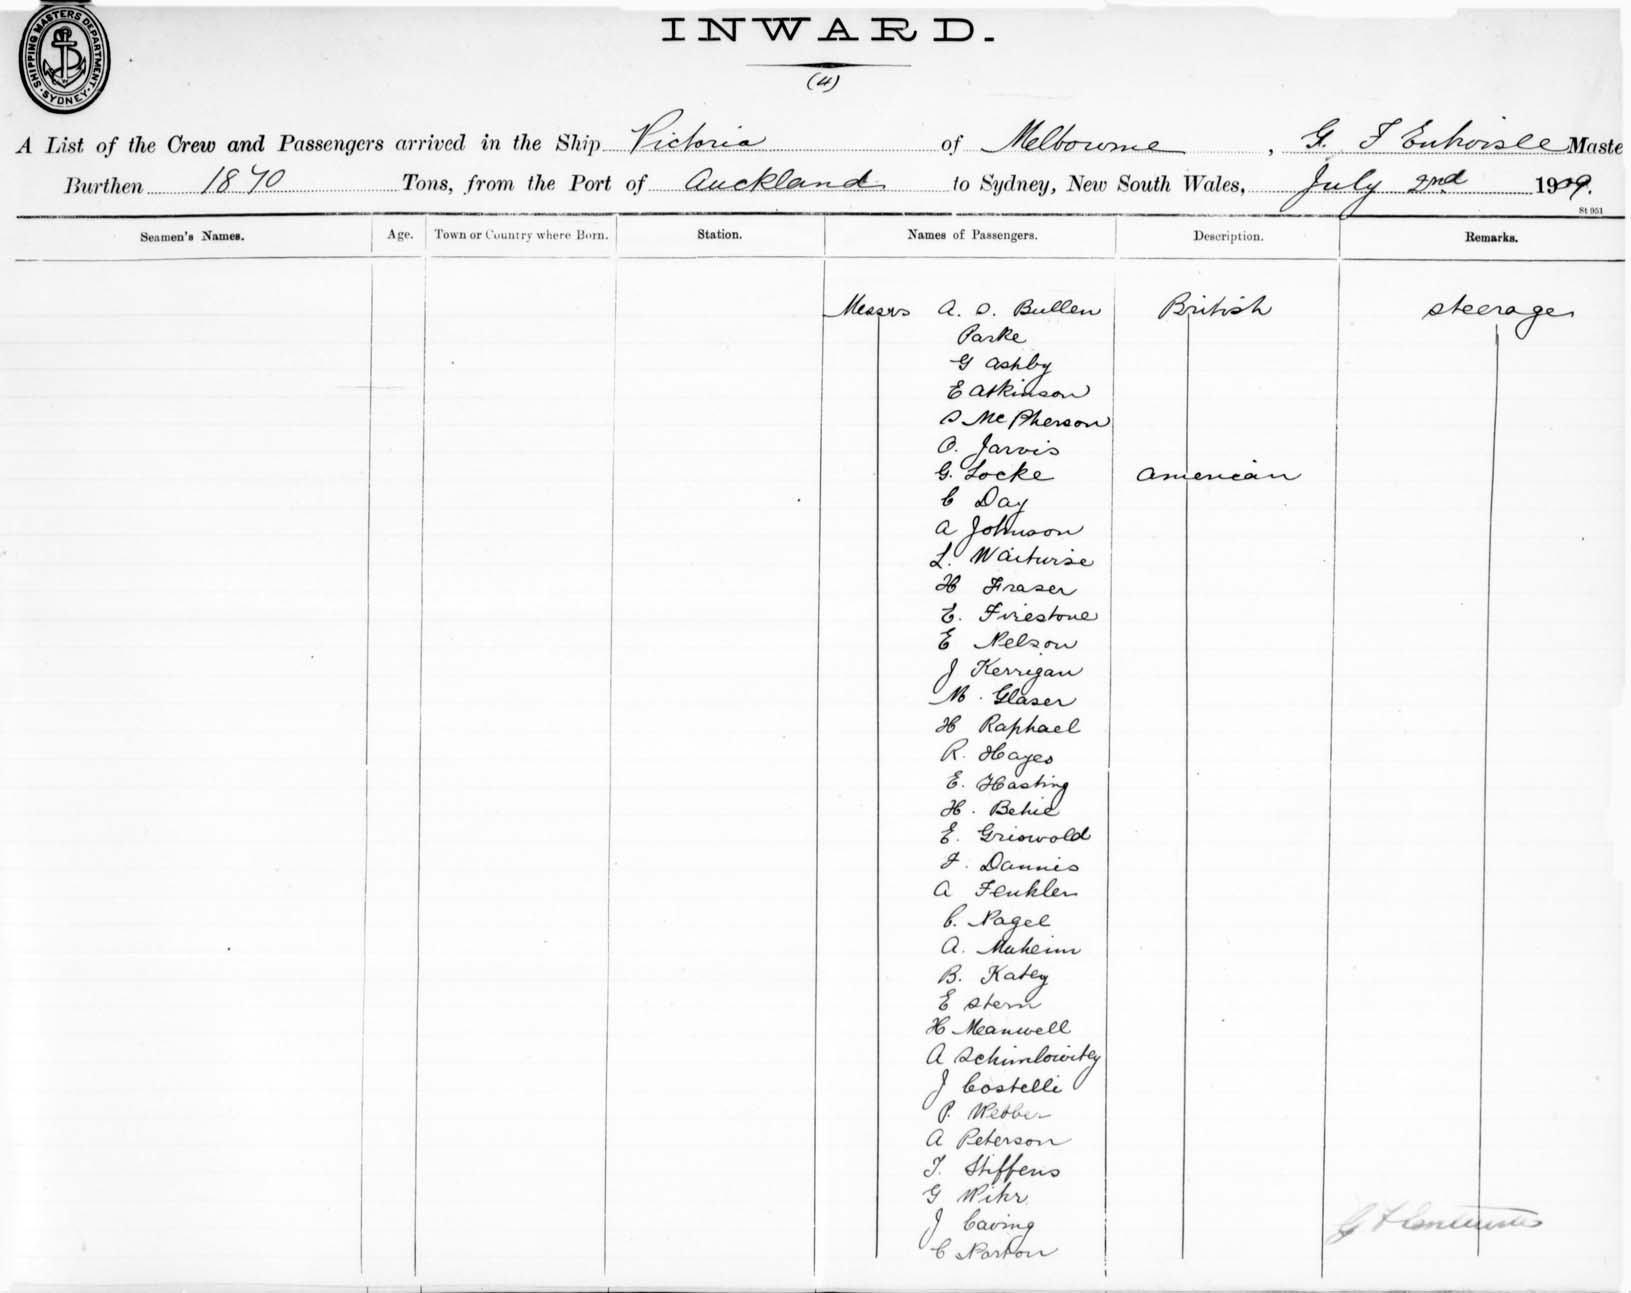 INWARD.
SHIPPING MASTERS DEPARTMENT. SYDNEY.
(4)
A List of the Crew and Passengers arrived in the Ship Victoria of Melbourne, G. F Entwisle Maste
Burthen 1870 Tons, from the Port of Auckland to Sydney, New South Wales, July 2nd 1909.
St 951
Seamen's Names. Age. Town or Country where Born. Station. Names of Passengers. Description. Remarks.
Messrs A. S. Bullen British Steerage
Parke
G Ashby
E Atkinson
S McPherson
O. Jarvis
G. Locke American
C Day
A Johnson
L. Waitwise
H Fraser
E. Firestone
E Nelson
J Kerrigan
M. Glaser
H Raphael
R. Hayes
E. Hasting
H. Behie
E. Griswold
F. Dannis
A Fenkler
C. Nagel
A. Muheim
B. Katey
E Stern
H Meanwell
A Schimlowitzy
J Costelli
P. Webber
A Peterson
T. Stiffens
G Wikr
J Caving
C Norton